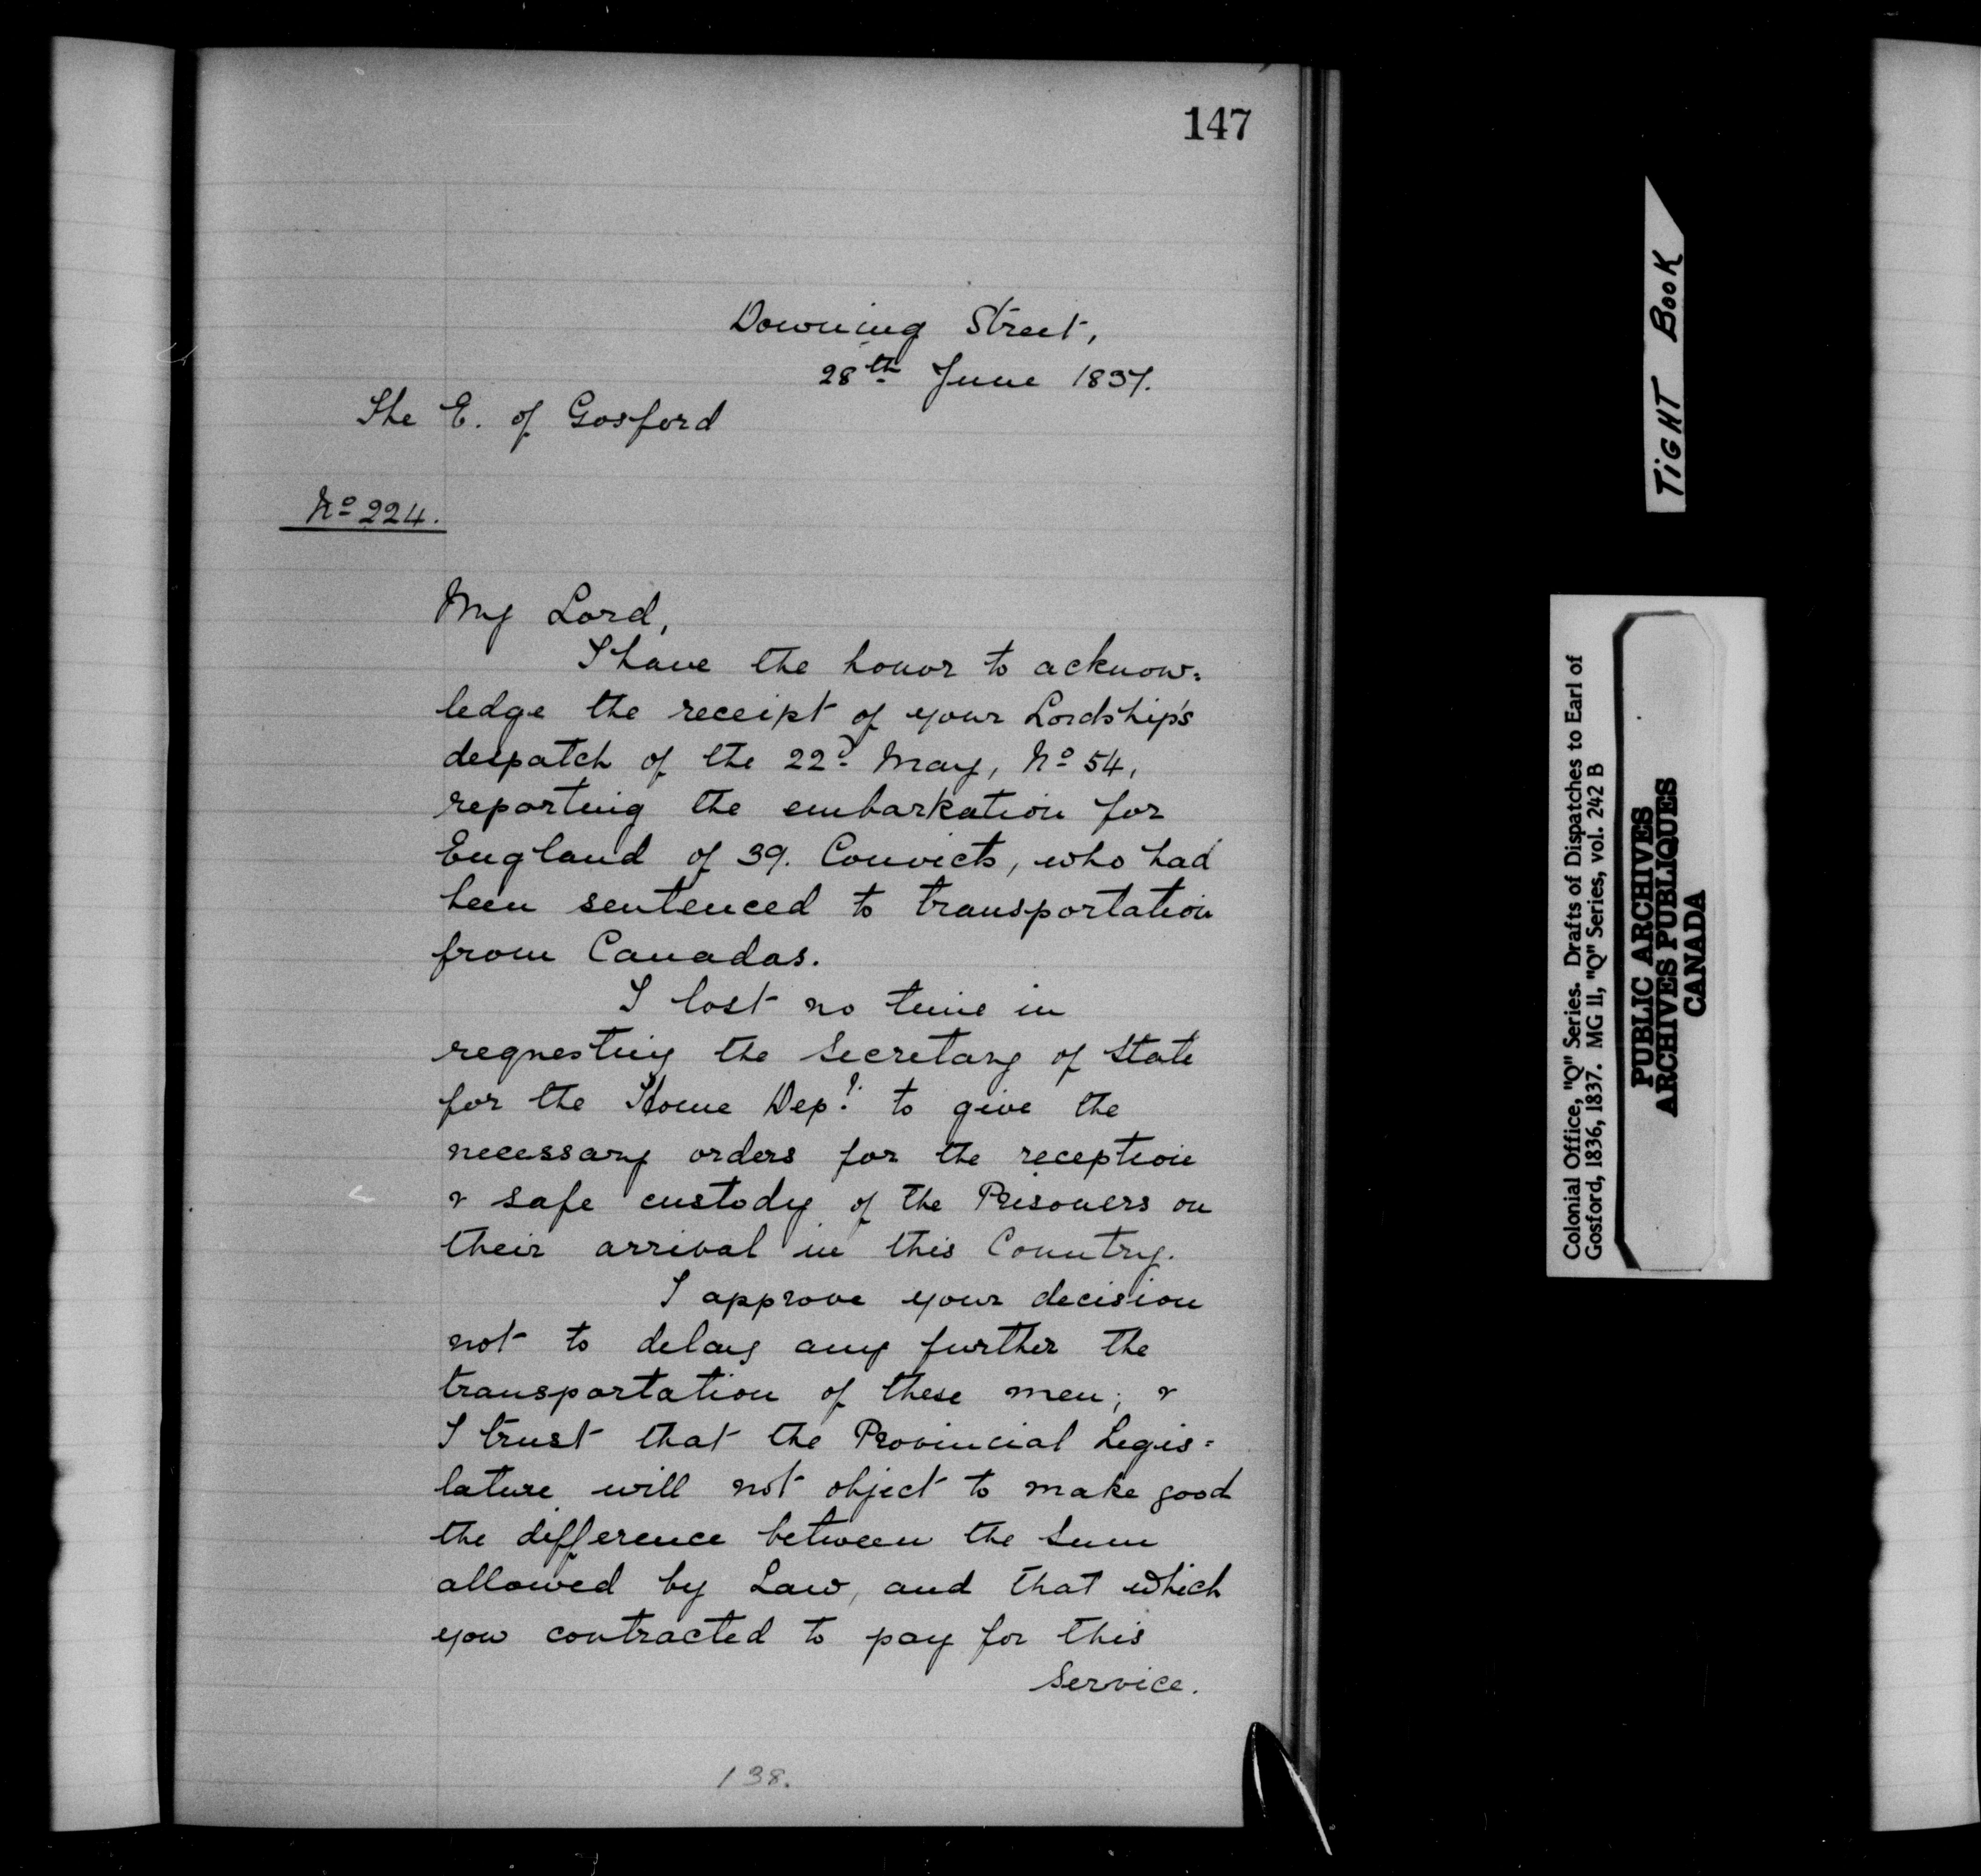 147
Downing Street,
28th June 1837.
The E. of Gosford
No 224.
My Lord,
I have the honor to acknow=
ledge the receipt of your Lordship's
despatch of the 22d May, No 54,
reporting the embarkation for
England of 39. Convicts, who had
been sentenced to transportation
from Canadas.
I lost no time in
requesting the Secretary of State
for the Home Dept. to give the
necessary orders for the reception
& safe custody of the Prisoners on
their arrival in this Country.
I approve your decision
not to delay any further the
transportation of these men; &
I trust that the Provincial Legis=
lature will not object to make good
the difference between the sum
allowed by Law, and that which
you contracted to pay for this
Service.
138.
TIGHT BOOK
Colonial Office, "Q" Series. Drafts of Dispatches to Earl of
Gosford, 1836, 1837. MG 11, "Q" Series, vol. 242 B
PUBLIC ARCHIVES
ARCHIVES PUBLIQUES
CANADA